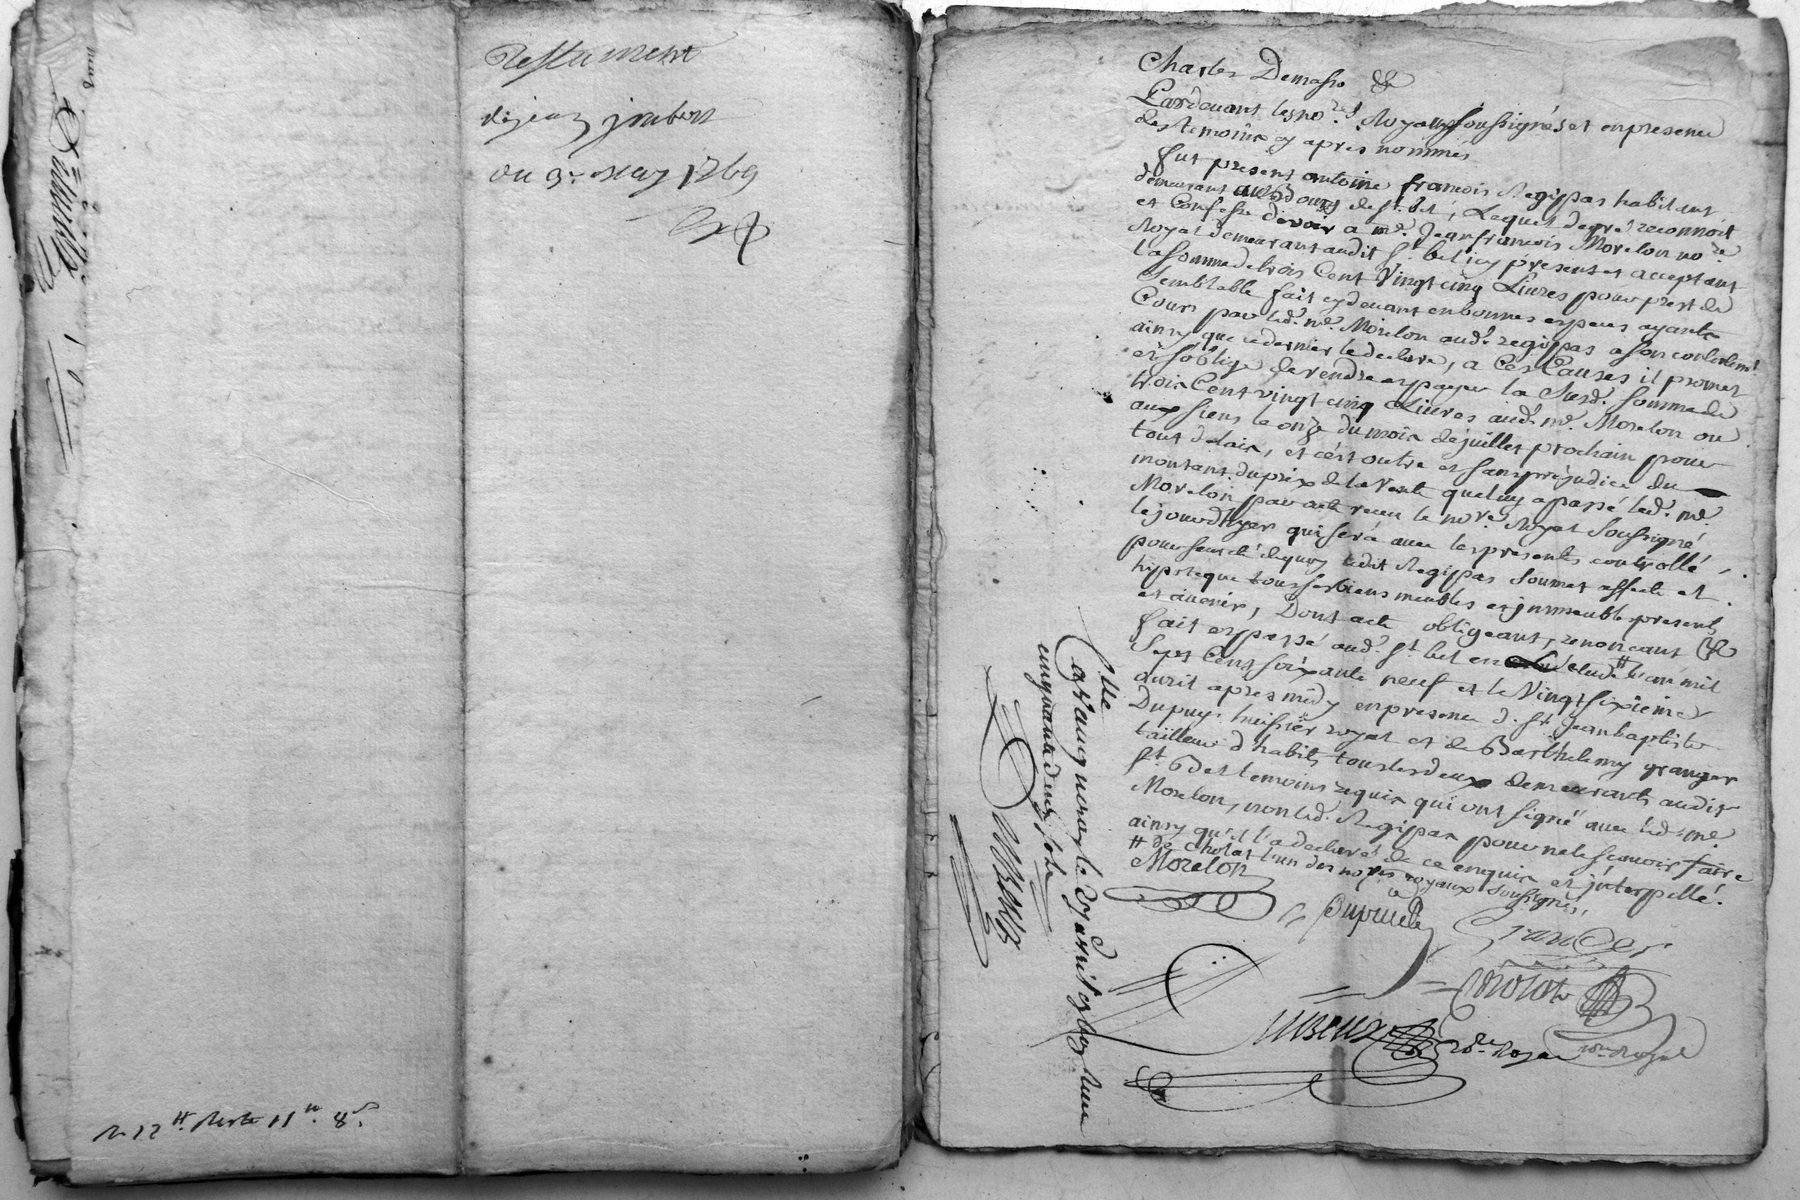 Testament
de jean joubert
du 3e. may 1769
R 12tt. Reste 11tt. 8s.
Charles Demasso &
Pardevant les nores. Royaux soussignés et en presence
des temoins cy apres nommés
fut present antoine francois Regipas habitant
demeurant au Bourg de st. bt, Lequel de gré reconnoit
et Confesse devoir a me. Jean francois Morelon nore.
Royal demeurant audit st. bet icy present et acceptant
la somme de trois Cent Vingt cinq Livres pour prest de
semblable fait cy devant en bonnes especes ayants
Cours par led. me. Morelon aud. regipas a son contentemt.
ainsy que ce dernier le declare, a Ces Causes il promet
et s'oblige de rendre et payer la Susd. somme de
trois Cent vingt cinq Livres aud. me. Morelon ou
aux siens le onze du mois de juillet prochain pour
tout delais, et c'est outre et sans prejudice du
montant du prix de la Vente que luy a passé led. me.
Morelon par acte receu le nore. Royal Soussigné
le jour d'hyer qui serà avec les presentes controllé,
pour seureté dequoy ledit Regipas soumet affecte et
hypoteque tous ses biens meubles et immeubles presents
et avenir, Dont acte obligeant, renoncant &
fait et passé aud. st. bet en Letude # L'an mil
Sept Cent soixante neuf et le Vingt sixieme
avril apres midy en presence d. sr. Jean baptiste
Dupuy huissier royal et de Barthelemy granger
tailleur d'habits tous les deux demeurants audit
st. Bet temoins requis qui ont signé avec led. me.
Morelon, non led. Regipas pour ne le scavoir faire
ainsy qu'il l'a declaré de ce enquis et interpellé.
# de Cholat l'un des nores royaux soussignés,
Morelon
Dupuy
Granger
Cholat
nore. Royal
nore Royal